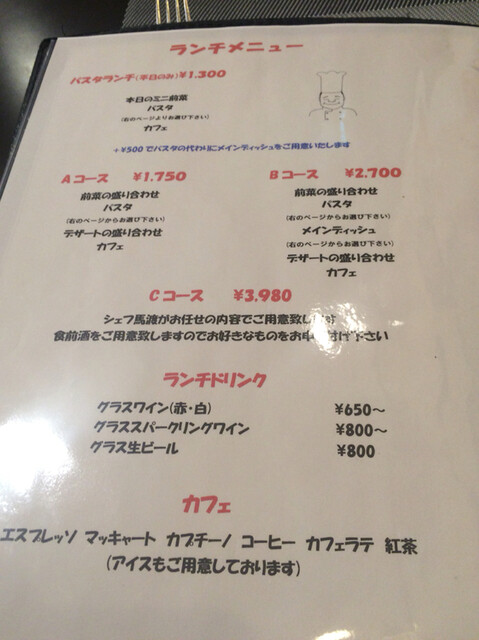 ランチメニュー
パスタランチ(平日のみ)¥1,300
本日のミニ前菜
パスタ
(右のページよりお選び下さい)
カフェ
+¥500でパスタの代わりにメインディッシュをご用意いたします
Aコース ¥1.750
前菜の盛り合わせ
パスタ
(右のページからお選び下さい)
デザートの盛り合わせ
カフェ
Bコース ¥2.700
前菜の盛り合わせ
パスタ
(右のページからお選び下さい)
メインディッシュ
(右のページからお選び下さい)
デザートの盛り合わせ
カフェ
Cコース ¥3,980
シェフ馬渡がお任せの内容でご用意致します
食前酒をご用意致しますのでお好きなものをお申し付け下さい
ランチドリンク
グラスワイン(赤・白) ¥650～
グラススパークリングワイン ¥800～
グラス生ビール ¥800
カフェ
エスプレッソ マッキャート カプチーノ コーヒー カフェラテ 紅茶
(アイスもご用意しております)